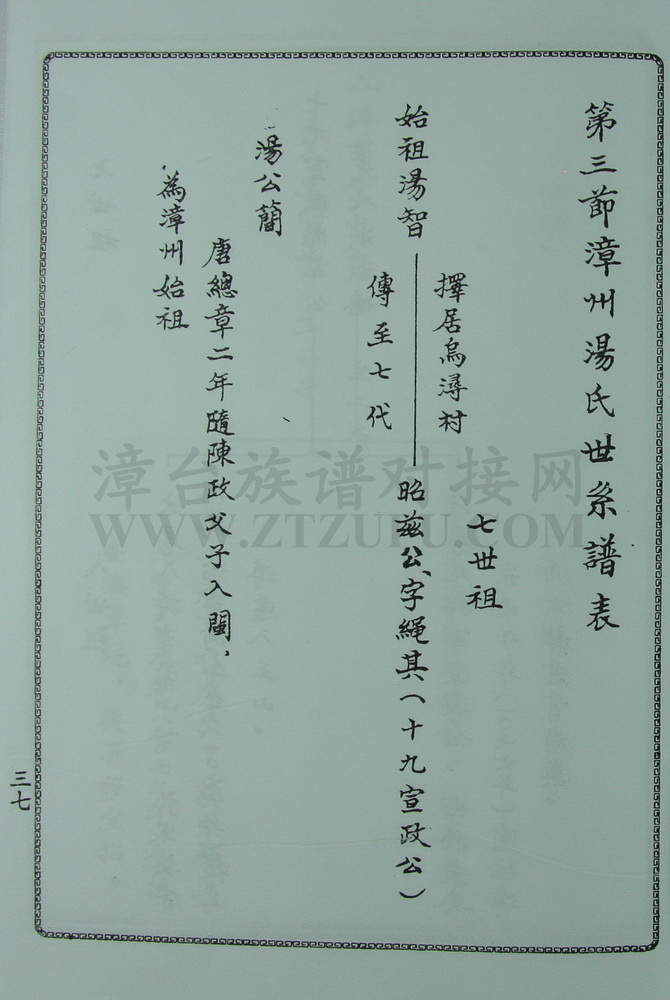 第三節漳州湯氏世系譜表
七世祖
擇居烏潯村
始祖湯智
昭兹公、字繩其(十九宣政公)
傳至七代
湯公簡
唐總章二年隨陳政父子入閩,
為漳州始祖
三七
漳台族谱对接网
WWW.ZTZUPU.COM